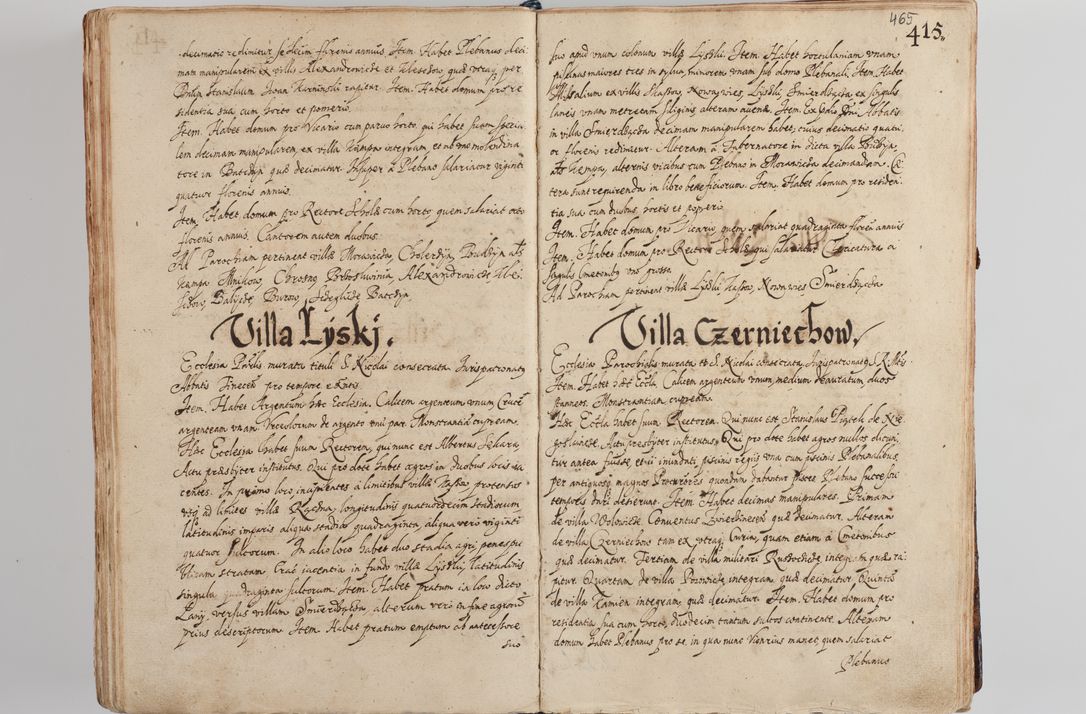 decimatio redimitur sedecim florenis annuis. Item. Habet Plebanus deci
mam manipularem ex villis Alexandrovicze et
Stanislaum
sidentia sua, cum horto et pomerio.
Item. Habet domum pro Vicario cum parvo horto, qui habet suam specia
lem decimam manipularem, ex villa Kampa integram, et ab uno molendina
tore in Batczyn quæ decimatur. Insuper a Plebano salariatur viginti
quatuor florenis annuis.
Item. Habet domum pro Rectore Scholæ cum horto, quem salariat octo
florenis annuis. Cantorem autem duobus.
Ad Parochiam pertinent villæ Morawicza, Cholerzyn, Budzyn als
Kempa Mnikow, Chrosna Alexandrovicze
Burow,
Villa Lyskj.
Ecclesia murata tituli S. Nicolai consecrata Iurispatronatus
Abbatis Tinecen pro tempore
Item. Habet Argentum hæc Ecclesia. Calicem argenteum unum Crucem
argenteam unam. Urceolorum de argento unu par. Monstrantia cupream.
Hæc Ecclesia habet suum Rectorem, qui nunc est Albertus
Actu præsbyter institutus. Qui pro dote habet agros in duobus locis ia
centes. In primo loco, a limitibus villæ Kaszow protensos
usq ad limites villæ Raczna, longitudinis quatuordecim stadiorum
latitudinis imparis aliqua stadia quadraginta, aliqua vero viginti
quatuor sulcorum. In alio loco habet duo stadia agri penes pu
blicam stratam, iacentia in fundo villæ Lyski, latitudinis
singula quadraginta sulcorum. Item. Habet pratum in loco dicto
Lany, versus villam alterum vero in fine agorum
prius descriptorum. Item. Habet pratum emptum ab antecessore
suo
465
415.
suo apud unum colonum villæ Lyski. Item. Habet hortulaniam unam
piscinas maiores tres in sylva, minorem unam sub domo Plebanali. Item. Habet
Missalium ex villis Kaszow, Nowawies, Lyski, ex singulis
laneis unam metretam siliginis alteram avenæ. Item. Ex Abbatis
in villa decimam manipularem habet, cuius decimatio quatu
or florenis redimitur. Alteram a Gubernatore in dicta villa Budzyn
als Kempa, alternis vicibus cum Plebano in Morawicza decimandam. Cæ
tera sunt requirenda in libro beneficiorum. Item. Habet domum pro residen
tia sua cum duobus hortis et pomerio.
Item. Habet domum pro Vicario quem salariat quadraginta floren annuis
Item. Habet domum pro Rectore Scholæ qui salariatur a
singulis Cmetonibus uno grosso.
Ad Parochiam pertinent villæ Lyski, Kaszow, Nowawies,
Villa Czerniechow.
Ecclesia Parochialis murata et S. Nicolai consecrata, Iurispatronatus
Item. Habet hæc Eccla. Calicem argenteum unum medium deauratum, duos
stanneos. Monstrantiam cupream.
Hæc Eccla habet suum Rectorem. Qui nunc est Stanislaus de
Actu presbyter institutus. Qui pro dote habet agros nullos dicun
tur antea fuisse, etui inundati piscinis regiis una cum piscinis Plebanalibus,
per antiquos magnos Procuratores quondam dabantur pisces Plebano successu
temporis dari desierunt. Item. Habet decimas manipulares. Primam
de villa Wolowicze Conventus quæ decimatur. Alteram
de villa Czerniechow tam ex utraq Curia, quam etiam a Cmetonibus
quæ decimatur. Tertiam de villa militari Rusoczicze, integra quæ ra
pitur. Quartam de villa integram, quæ decimatur. Quintam
de villa Kamien integram, quæ decimatur. Item. Habet domum pro
residentia sua cum horto, duodecim tantum sulcos continente. Alteram
domum habet Plebanus pro se, in qua nunc Vicarius manet, quem salariat
Plebanus